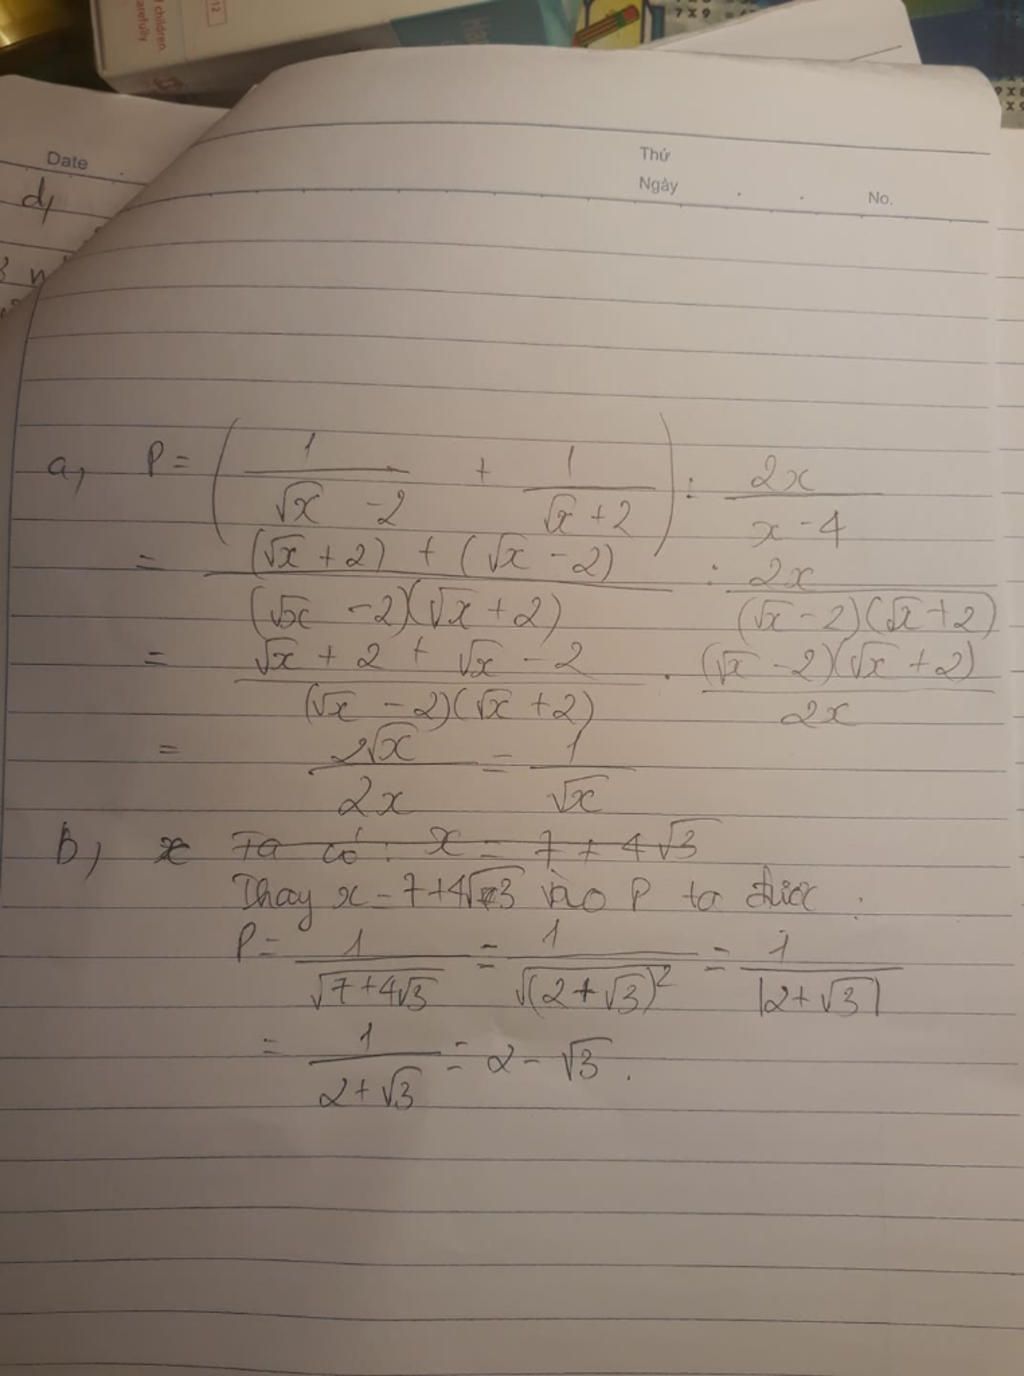 children.
carefully
12
7 x 9 =
Date
d,
Thứ
Ngày . . No.
a, P = ( 1/(√x - 2) + 1/(√x + 2) ) : 2x/(x - 4)
= ((√x + 2) + (√x - 2))/((√x - 2)(√x + 2)) : 2x/((√x - 2)(√x + 2))
= (√x + 2 + √x - 2)/((√x - 2)(√x + 2)) . ((√x - 2)(√x + 2))/2x
= 2√x/2x = 1/√x
b, x Ta có: x = 7 + 4√3
Thay x = 7+4√3 vào P ta được :
P = 1/√(7+4√3) = 1/√((2+√3)²) = 1/|2+√3|
= 1/(2+√3) = 2 - √3.